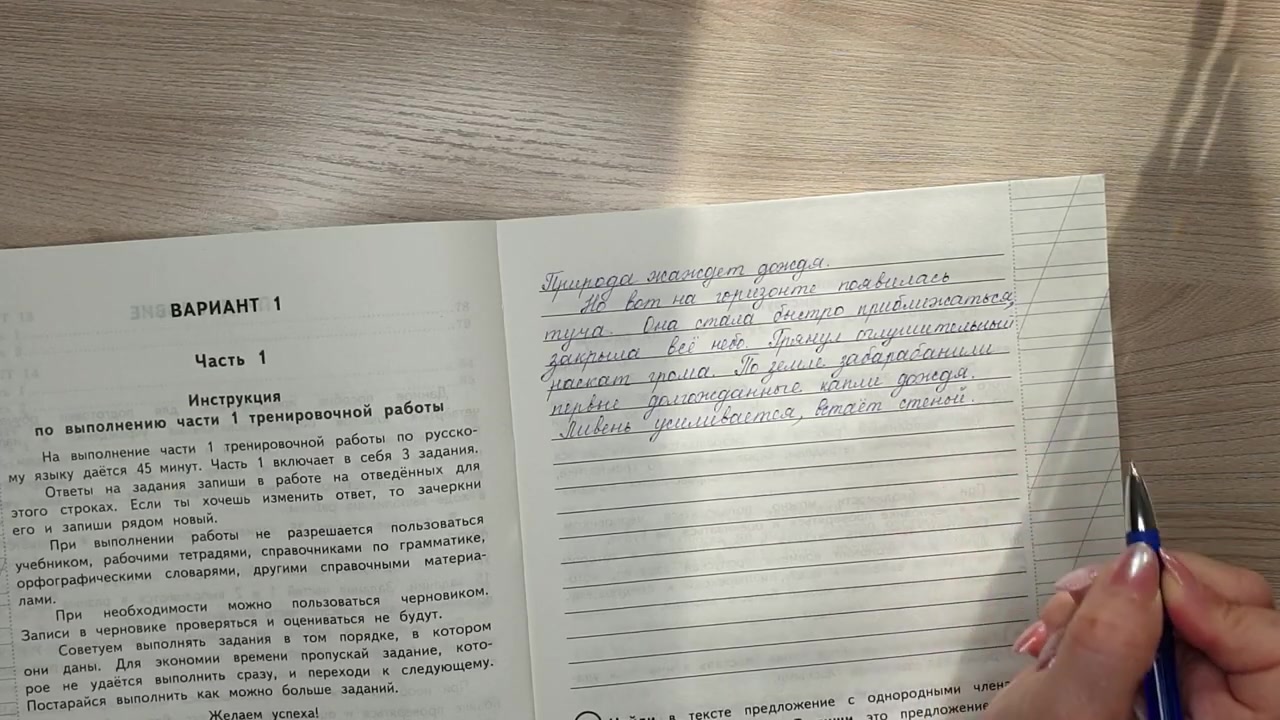 ВАРИАНТ 1
Часть 1
Инструкция
по выполнению части 1 тренировочной работы
На выполнение части 1 тренировочной работы по русско-
му языку даётся 45 минут. Часть 1 включает в себя 3 задания.
Ответы на задания запиши в работе на отведённых для
этого строках. Если ты хочешь изменить ответ, то зачеркни
его и запиши рядом новый.
При выполнении работы не разрешается пользоваться
учебником, рабочими тетрадями, справочниками по грамматике,
орфографическими словарями, другими справочными материа-
лами.
При необходимости можно пользоваться черновиком.
Записи в черновике проверяться и оцениваться не будут.
Советуем выполнять задания в том порядке, в котором
они даны. Для экономии времени пропускай задание, кото-
рое не удаётся выполнить сразу, и переходи к следующему.
Постарайся выполнить как можно больше заданий.
Желаем успеха!
Природа жаждет дождя.
Но вот на горизонте появилась
туча. Она стала быстро приближаться,
закрыла всё небо. Грянул оглушительный
раскат грома. По земле забарабанили
первые долгожданные капли дождя.
Ливень усиливается, встаёт стеной.
Найди в тексте предложение с однородными члена
это предложение